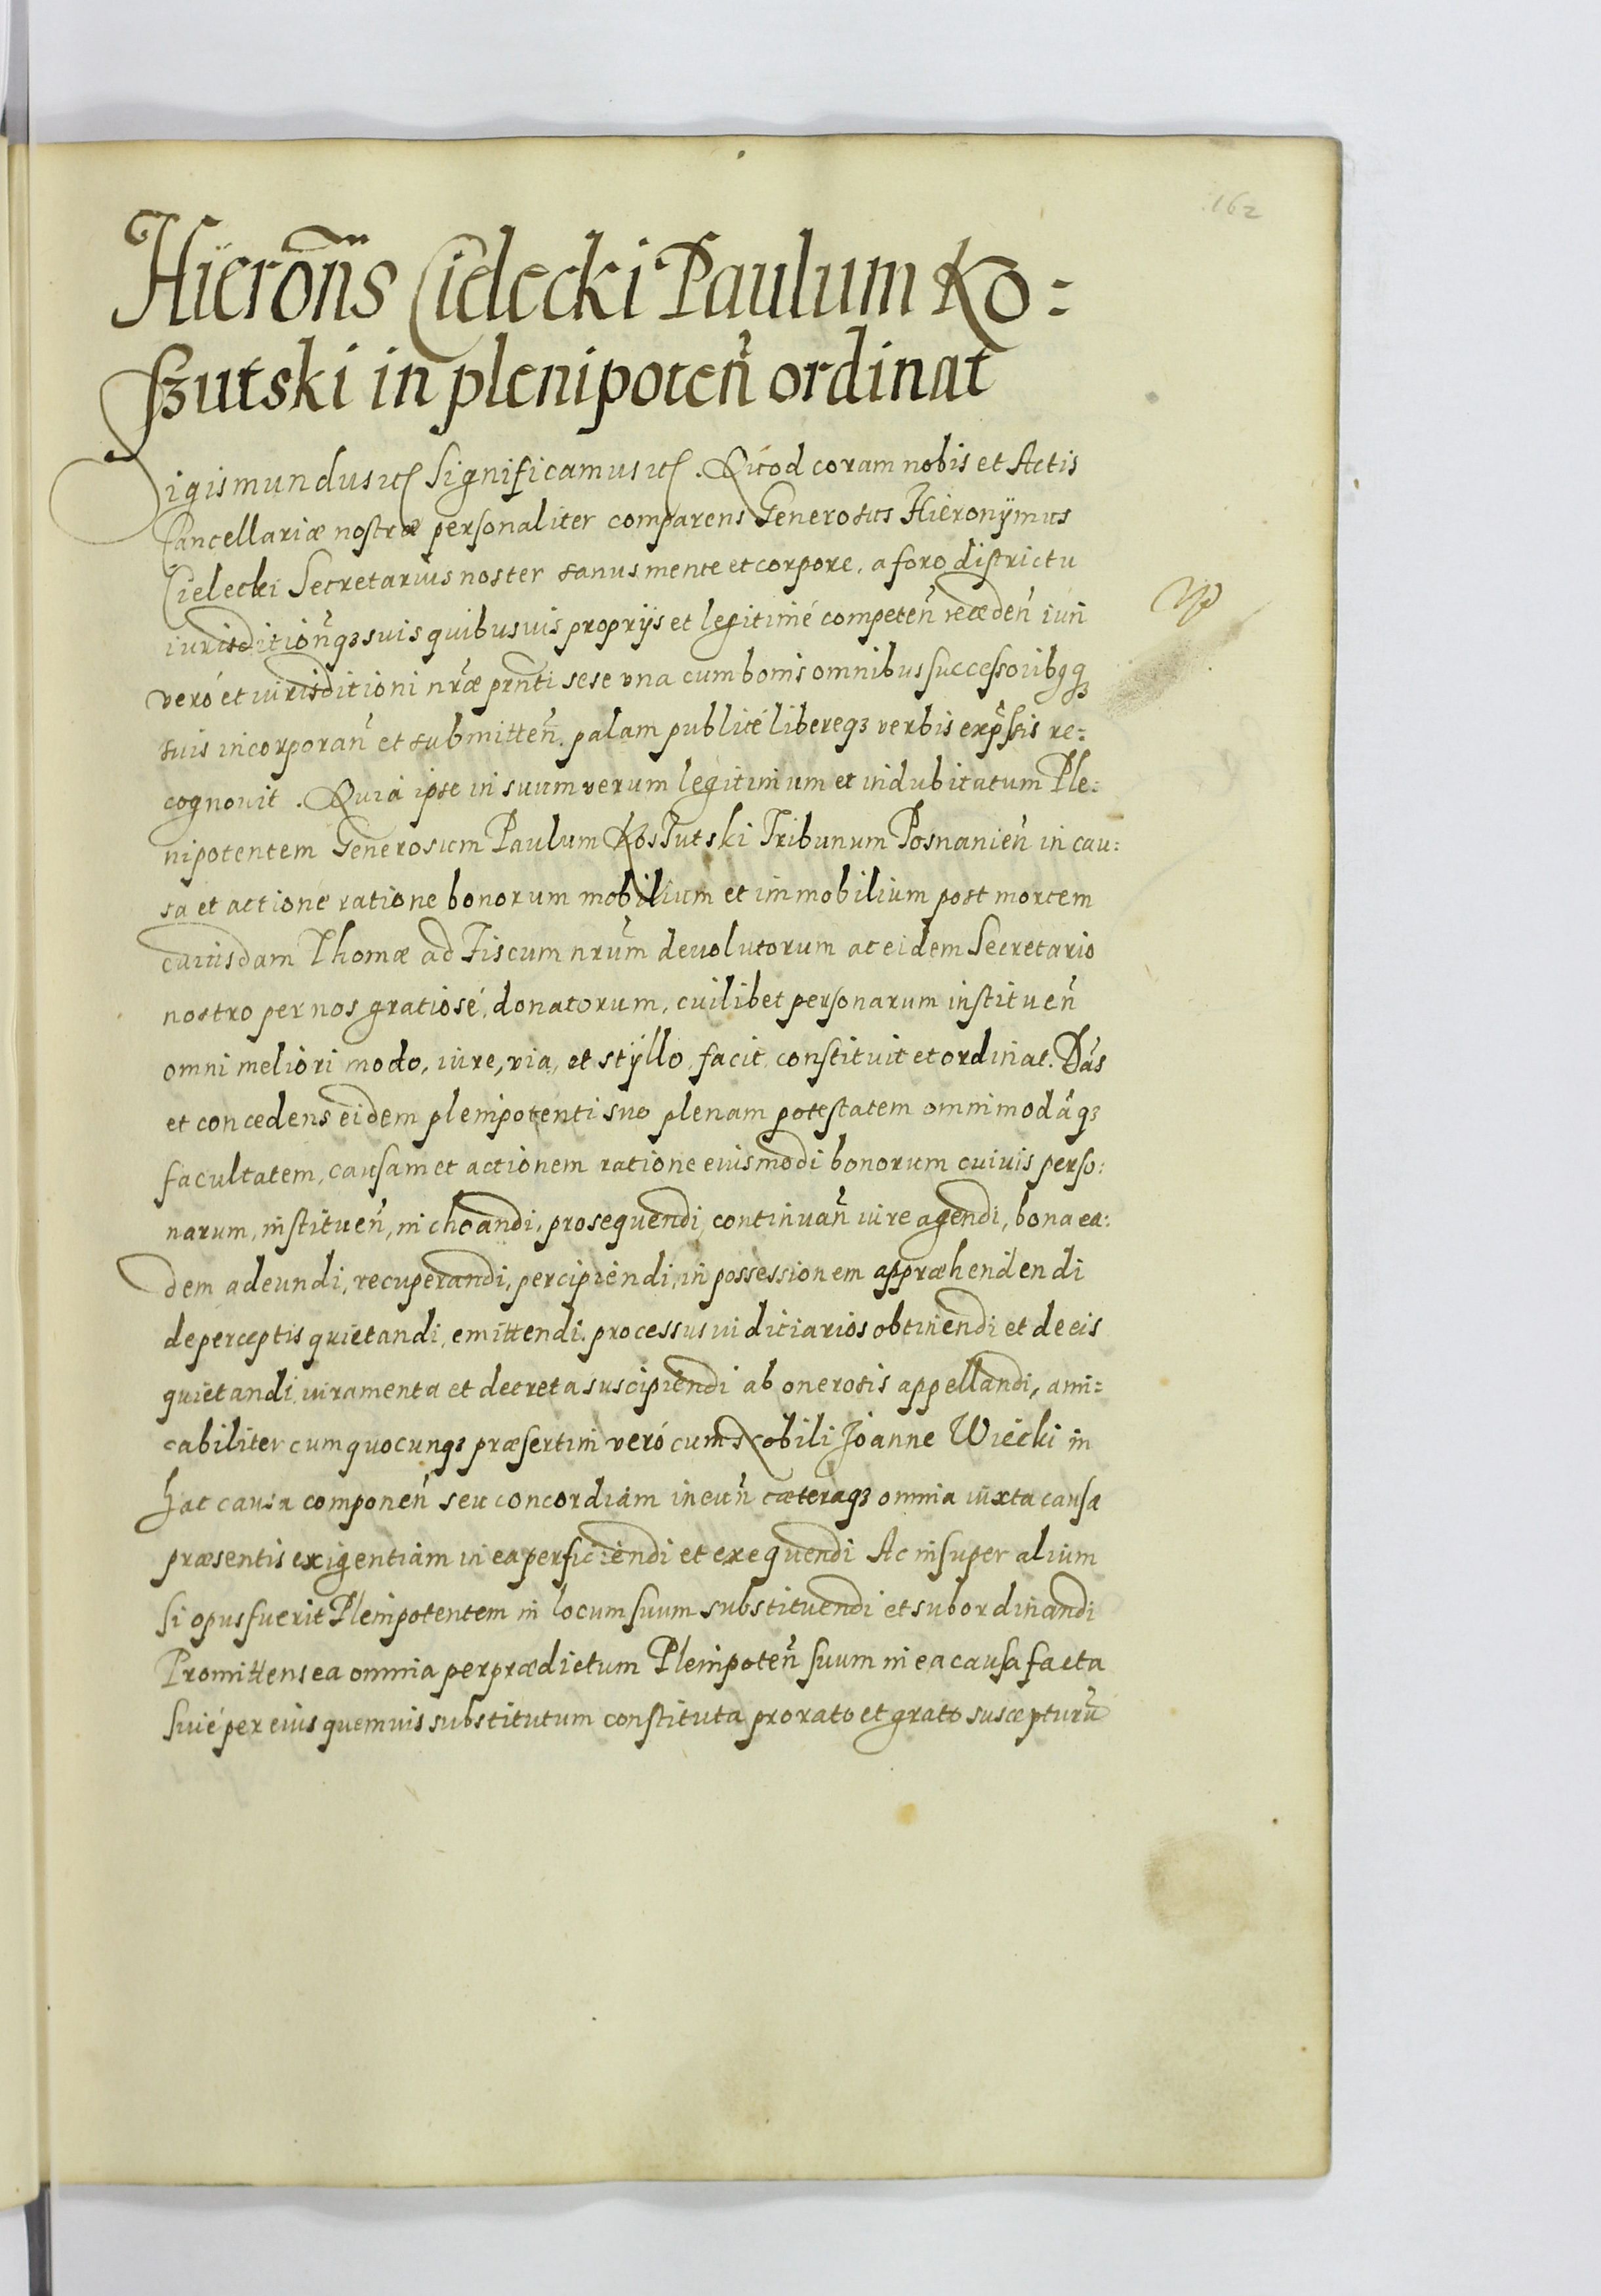 162
Hieron̄ns Cielecki Paulum Ko=
szutski in plenipoten̄ ordinat
Sigismundus etc Significamus etc. Quod coram nobis et Actis
Cancellariæ nostræ personaliter comparens Generosus Hieronÿmus
Cielecki Secretarius noster sanus mente et corpore, a foro districtu
iurisdition̄qꝫ suis quibusuis proprijs et legitimé competen̄ recæden̄ iuri
veró et iurisditioni nr̄æ prn̄ti sese vna cum bonis omnibus successoribqꝫ
suis incorporan̄ et submitten̄. palam publicé libereqꝫ verbis exp̄ssis re=
cognouit. Quia ipse in suum verum legitimum et indubitatum Ple=
nipotentem Generosum Paulum Kossutski Tribunum Posnanien̄ in cau=
sa et actione ratione bonorum mobilium et immobilium post mortem
cuiusdam Thomæ ad Fiscum nr̄um deuolutorum ac eidem Secretario
nostro per nos gratiosé, donatorum, cuilibet personarum instituen̄
omni meliori modo, iure, via, et stÿllo, facit constituit et ordinat. Dās
et concedens eidem plenipotenti suo plenam potestatem omnimodāqꝫ
facultatem, causam et actionem ratione euismodi bonorum cuiuis perso=
narum, instituen̄, inchoandi, prosequendi, continuan̄ iure agendi, bona ea=
dem adeundi, recuperandi, percipiendi, in possessionem appræhendendi
de perceptis quietandi, emittendi. processus iuditiarios obtinendi et de eis
quietandi, iuramenta et decreta suscipiendi ab onerosis appellandi, ami=
cabiliter cum quocunqꝫ præsertim veró cum Nobili Joanne Wiecki in
hac causa componen̄ seu concordiam ineun̄ cæteraqꝫ omnia iuxta causæ
præsentis exigentiam in ea perficiendi et exequendi Ac insuper alium
si opus fuerit Plenipotentem in locum suum substituendi et subordinandi
Promittens ea omnia per prædictum Plenipoten̄ suum in ea causa facta
siué per eius quemuis substitutum constituta pro rato et grato suscepturū